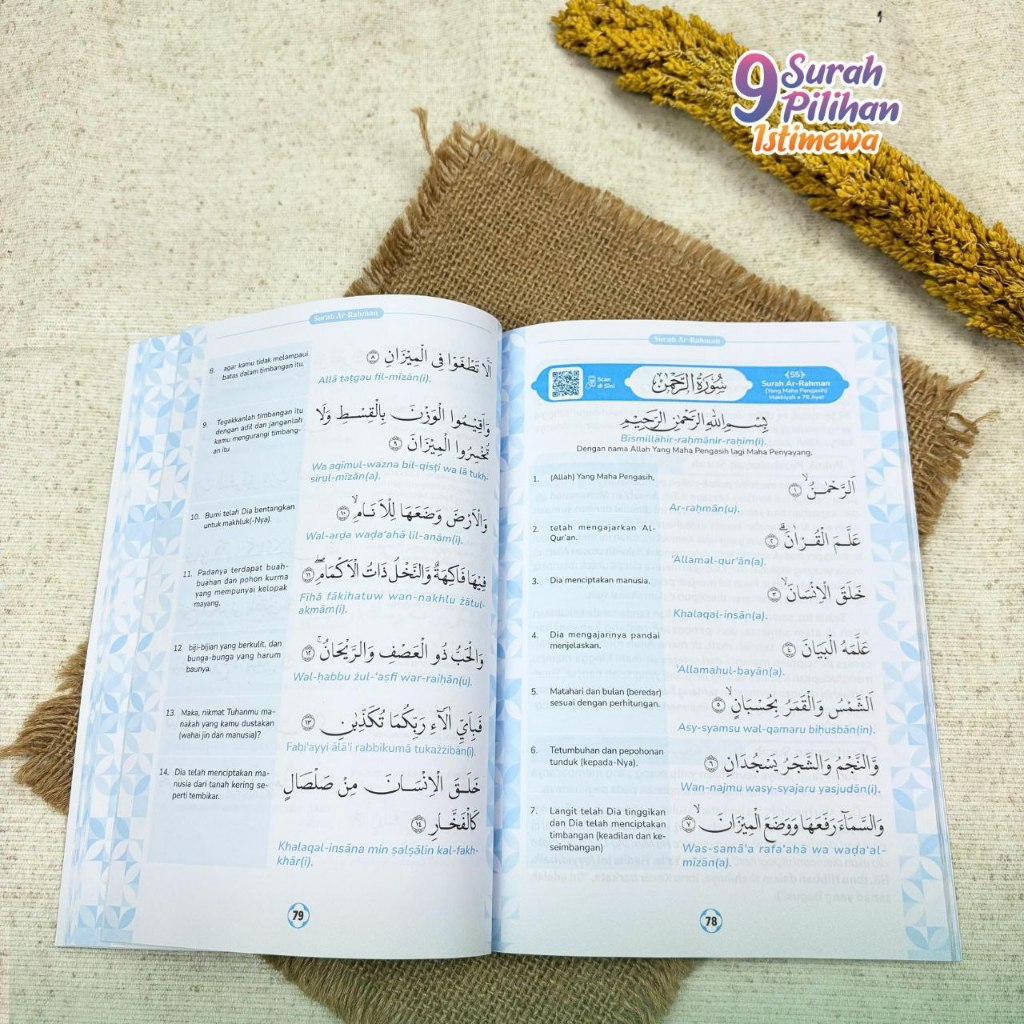 9 Surah
Pilihan
Istimewa
Surah Ar-Rahman
Scan
di Sini
سُوْرَةُ الرَّحْمٰنِ
﴾55﴿
Surah Ar-Rahman
(Yang Maha Pengasih)
Makkiyah • 78 Ayat
بِسْمِ اللّٰهِ الرَّحْمٰنِ الرَّحِيْمِ
Bismillāhir-raḥmānir-raḥīm(i).
Dengan nama Allah Yang Maha Pengasih lagi Maha Penyayang.
1. (Allah) Yang Maha Pengasih,
اَلرَّحْمٰنُۙ ۝١
Ar-raḥmān(u).
2. telah mengajarkan Al-
Qur'an.
عَلَّمَ الْقُرْاٰنَۗ ۝٢
'Allamal-qur'ān(a).
3. Dia menciptakan manusia.
خَلَقَ الْاِنْسَانَۙ ۝٣
Khalaqal-insān(a).
4. Dia mengajarinya pandai
menjelaskan.
عَلَّمَهُ الْبَيَانَ ۝٤
'Allamahul-bayān(a).
5. Matahari dan bulan (beredar)
sesuai dengan perhitungan.
اَلشَّمْسُ وَالْقَمَرُ بِحُسْبَانٍۙ ۝٥
Asy-syamsu wal-qamaru biḥusbān(in).
6. Tetumbuhan dan pepohonan
tunduk (kepada-Nya).
وَالنَّجْمُ وَالشَّجَرُ يَسْجُدَانِ ۝٦
Wan-najmu wasy-syajaru yasjudān(i).
7. Langit telah Dia tinggikan
dan Dia telah menciptakan
timbangan (keadilan dan ke-
seimbangan)
وَالسَّمَاۤءَ رَفَعَهَا وَوَضَعَ الْمِيْزَانَۙ ۝٧
Was-samā'a rafa'ahā wa waḍa'al-
mīzān(a).
78
Surah Ar-Rahman
8. agar kamu tidak melampaui
batas dalam timbangan itu.
اَلَّا تَطْغَوْا فِى الْمِيْزَانِ ۝٨
Allā taṭgau fil-mīzān(i).
9. Tegakkanlah timbangan itu
dengan adil dan janganlah
kamu mengurangi timbang-
an itu.
وَاَقِيْمُوا الْوَزْنَ بِالْقِسْطِ وَلَا
تُخْسِرُوا الْمِيْزَانَ ۝٩
Wa aqīmul-wazna bil-qisṭi wa lā tukh-
sirul-mīzān(a).
10. Bumi telah Dia bentangkan
untuk makhluk(-Nya).
وَالْاَرْضَ وَضَعَهَا لِلْاَنَامِۙ ۝١٠
Wal-arḍa waḍa'ahā lil-anām(i).
11. Padanya terdapat buah-
buahan dan pohon kurma
yang mempunyai kelopak
mayang,
فِيْهَا فَاكِهَةٌ وَّالنَّخْلُ ذَاتُ الْاَكْمَامِۖ ۝١١
Fīhā fākihatuw wan-nakhlu żātul-
akmām(i).
12. biji-bijian yang berkulit, dan
bunga-bunga yang harum
baunya.
وَالْحَبُّ ذُو الْعَصْفِ وَالرَّيْحَانُۚ ۝١٢
Wal-ḥabbu żul-'aṣfi war-raiḥān(u).
13. Maka, nikmat Tuhanmu ma-
nakah yang kamu dustakan
(wahai jin dan manusia)?
فَبِاَيِّ اٰلَاۤءِ رَبِّكُمَا تُكَذِّبٰنِ ۝١٣
Fabi'ayyi ālā'i rabbikumā tukażżibān(i).
14. Dia telah menciptakan ma-
nusia dari tanah kering se-
perti tembikar.
خَلَقَ الْاِنْسَانَ مِنْ صَلْصَالٍ
كَالْفَخَّارِ ۝١٤
Khalaqal-insāna min ṣalṣālin kal-fakh-
khār(i).
79